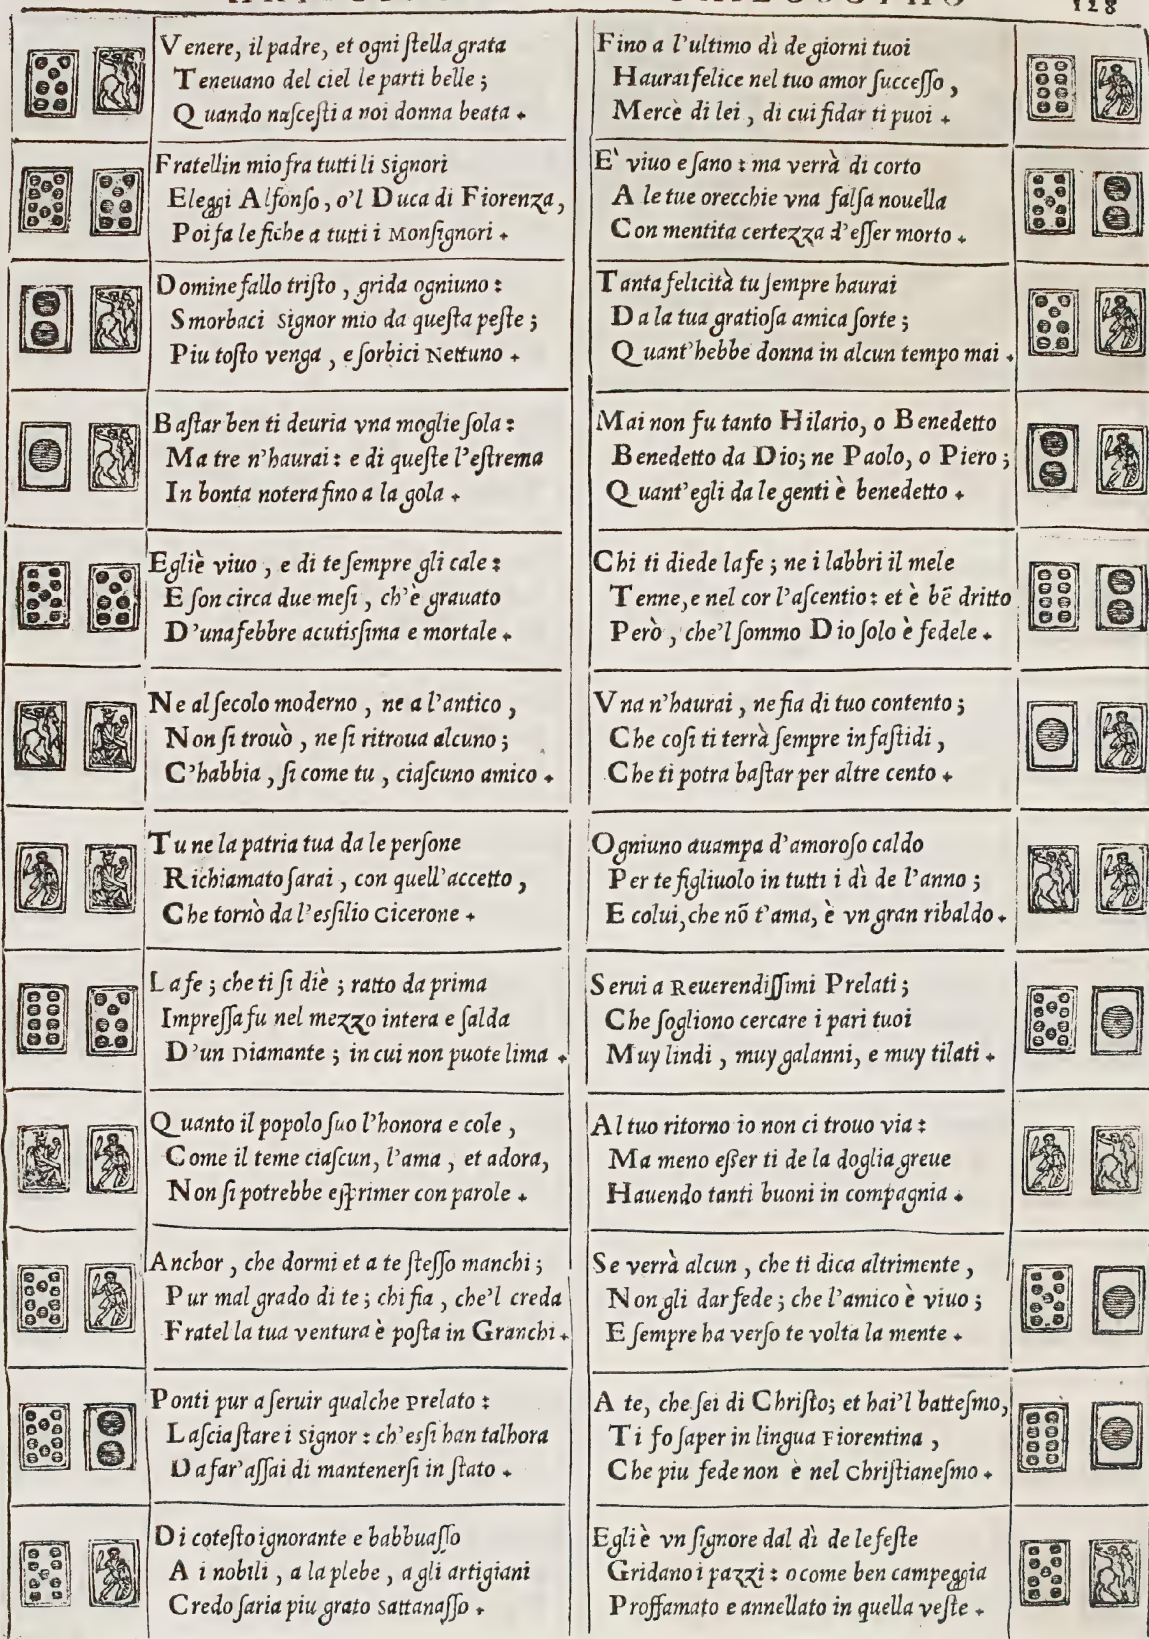 128
Venere, il padre, et ogni ſtella grata
Teneuano del ciel le parti belle;
Quando naſceſti a noi donna beata.
Fratellin mio fra tutti li signori
Eleggi Alfonſo, o'l Duca di Fiorenza,
Poi fa le fiche a tutti i Monſignori.
Domine fallo triſto, grida ogniuno:
Smorbaci signor mio da queſta peſte;
Piu toſto venga, e ſorbici Nettuno.
Baſtar ben ti deuria vna moglie ſola:
Ma tre n'haurai: e di queſte l'eſtrema
In bonta notera fino a la gola.
Egliè viuo, e di te ſempre gli cale:
E ſon circa due meſi, ch'è grauato
D'una febbre acutiſsima e mortale.
Ne al ſecolo moderno, ne a l'antico,
Non ſi trouò, ne ſi ritroua alcuno;
C'habbia, ſi come tu, ciaſcuno amico.
Tu ne la patria tua da le perſone
Richiamato ſarai, con quell'accetto,
Che tornò da l'eſsilio Cicerone.
La fe; che ti ſi diè; ratto da prima
Impreſſa fu nel mezzo intera e ſalda
D'un Diamante; in cui non puote lima.
Quanto il popolo ſuo l'honora e cole,
Come il teme ciaſcun, l'ama, et adora,
Non ſi potrebbe eſprimer con parole.
Anchor, che dormi et a te ſteſſo manchi;
Pur mal grado di te; chi fia, che'l creda
Fratel la tua ventura è poſta in Granchi.
Ponti pur a ſeruir qualche Prelato:
Laſcia ſtare i signor: ch'eſsi han talhora
Da far'aſſai di mantenerſi in ſtato.
Di coteſto ignorante e babbuaſſo
A i nobili, a la plebe, a gli artigiani
Credo ſaria piu grato sattanaſſo.
Fino a l'ultimo dì de giorni tuoi
Haurai felice nel tuo amor ſucceſſo,
Mercè di lei, di cui fidar ti puoi.
E' viuo e ſano: ma verrà di corto
A le tue orecchie vna falſa nouella
Con mentita certezza d'eſſer morto.
Tanta felicità tu ſempre haurai
Da la tua gratioſa amica ſorte;
Quant'hebbe donna in alcun tempo mai.
Mai non fu tanto Hilario, o Benedetto
Benedetto da Dio; ne Paolo, o Piero;
Quant'egli da le genti è benedetto.
Chi ti diede la fe; ne i labbri il mele
Tenne, e nel cor l'aſcentio: et è bẽ dritto
Però, che'l ſommo Dio ſolo è fedele.
Vna n'haurai, ne fia di tuo contento;
Che coſi ti terrà ſempre in faſtidi,
Che ti potra baſtar per altre cento.
Ogniuno auampa d'amoroſo caldo
Per te figliuolo in tutti i dì de l'anno;
E colui, che nõ t'ama, è vn gran ribaldo.
Serui a Reuerendiſſimi Prelati;
Che ſogliono cercare i pari tuoi
Muy lindi, muy galanni, e muy tilati.
Al tuo ritorno io non ci trouo via:
Ma meno eſser ti de la doglia greue
Hauendo tanti buoni in compagnia.
Se verrà alcun, che ti dica altrimente,
Non gli dar fede; che l'amico è viuo;
E ſempre ha verſo te volta la mente.
A te, che ſei di Chriſto; et hai'l batteſmo,
Ti fo ſaper in lingua Fiorentina,
Che piu fede non è nel Chriſtianeſmo.
Egliè vn ſignore dal dì de le feſte
Gridano i pazzi: o come ben campeggia
Proffamato e annellato in quella veſte.